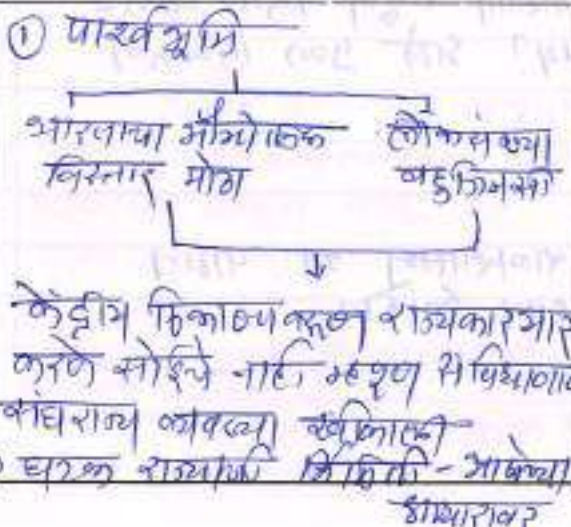 ① पार्श्वभूमि
भारताचा भौगोलिक
विस्तार मोठा
लोकसंख्या
बहुजिनसी
केंद्रीय ठिकाणावरून राज्यकारभार
करणे सोईचे नाही म्हणून संविधानात
संघराज्य व्यवस्था स्वीकारली
घटक राज्यांची निर्मिती - भाषेच्या
आधारावर